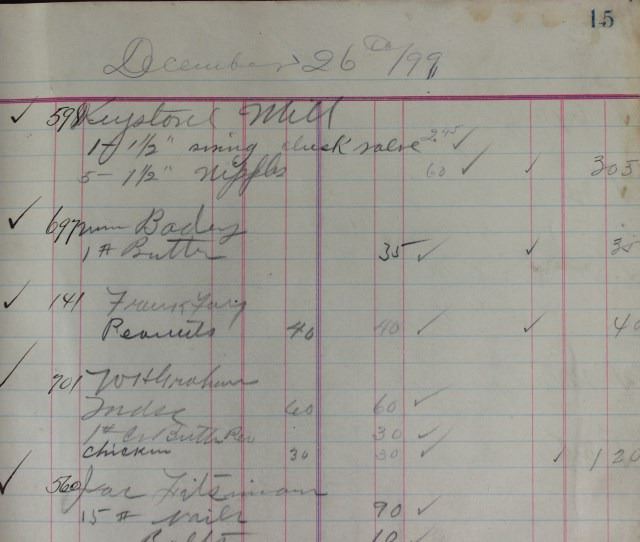 15
December 26th/99
✓ 598 Keystone Mill
1- 1 1/2" swing check valve 245 ✓
5- 1 1/2" Nipples 60 ✓ ✓ 305
✓ 697 Bodey
1 # Butter 35 ✓ ✓ 35
✓ 141 Frank
Peanuts 40 40 ✓ ✓ 40
✓ 701 W H Graham
60 60 ✓
1 # Butter 30 ✓
Chicken 30 30 ✓ ✓ 120
✓ 560 Jac Fitsimons
15 # nails 90 ✓
Bolts 10 ✓